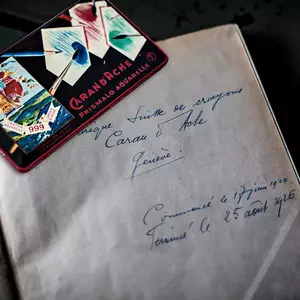 CARAN D'ACHE
PRISMALO AQUARELLE
999
Suisse de crayons
Caran d'Ache
Genève.
Commencé le 17 juin 1924
Terminé le 25 août 1926